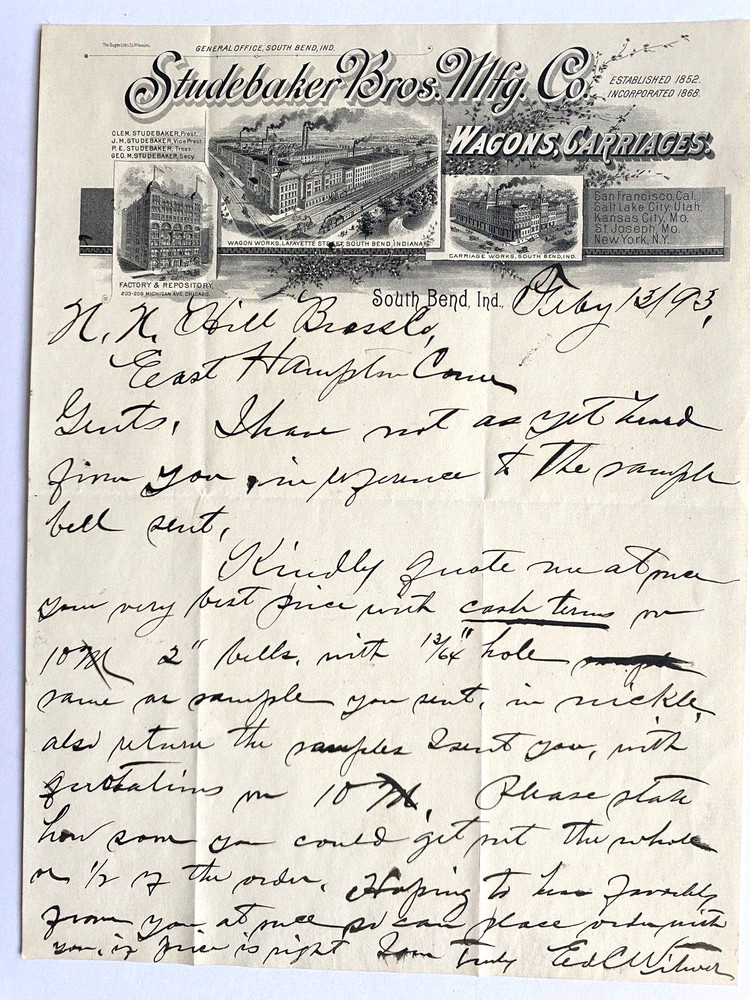 GENERAL OFFICE, SOUTH BEND, IND.
Studebaker Bros. Mfg. Co.
ESTABLISHED 1852.
INCORPORATED 1868.
WAGONS, CARRIAGES.
CLEM. STUDEBAKER, Prest.
J. M. STUDEBAKER, Vice Prest.
P. E. STUDEBAKER, Treas.
GEO. M. STUDEBAKER, Secy.
WAGON WORKS, LAFAYETTE STREET, SOUTH BEND, INDIANA.
CARRIAGE WORKS, SOUTH BEND, IND.
San Francisco, Cal.
Salt Lake City, Utah,
Kansas City, Mo.
St. Joseph, Mo.
New York, N.Y.
FACTORY & REPOSITORY,
203-206 MICHIGAN AVE. CHICAGO.
South Bend, Ind. Feby 13/93,
N. N. Hill Brass Co,
East Hampton Conn
Gents, I have not as yet heard
from you in reference to the sample
bell sent,
Kindly quote me at once
your very best price with cash terms on
10 M 2" bells, with 13/64" hole
same as sample you sent, in nickle,
also return the samples I sent you, with
quotations on 10 M, Please state
how soon you could get out the whole
or 1/2 of the order, Hoping to hear favorably
from you at once so can place order with
you, if price is right Yours Truly Ed C